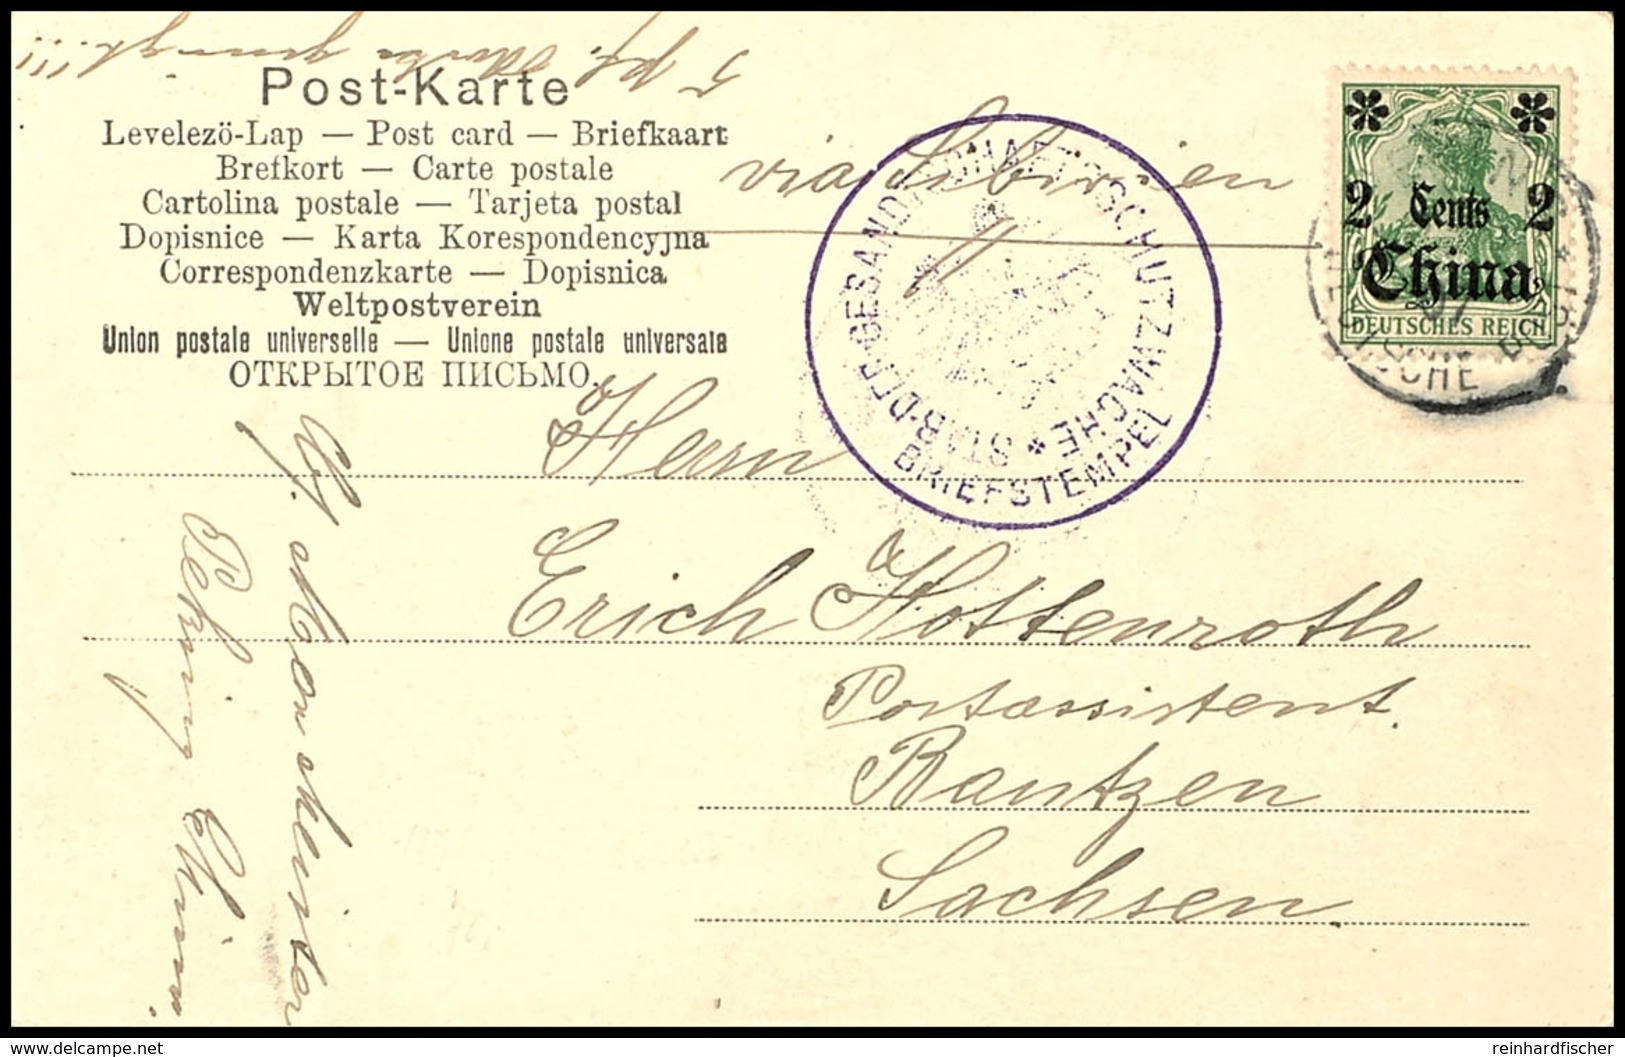 5 Pf. Marke genügt!!!
Post-Karte
Levelezö-Lap — Post card — Briefkaart
Brefkort — Carte postale
Cartolina postale — Tarjeta postal
Dopisnice — Karta Korespondencyjna
Correspondenzkarte — Dopisnica
Weltpostverein
Union postale universelle — Unione postale universale
ОТКРЫТОЕ ПИСЬМО.
via Sibirien
STAB·DER·GESANDTSCHAFTSSCHUTZWACHE *
BRIEFSTEMPEL
2 Cents 2
China
DEUTSCHES REICH
Herrn
Erich Hottenroth
Postassistent.
Bautzen
Sachsen.
Peking China
delcampe.net
reinhardfischer